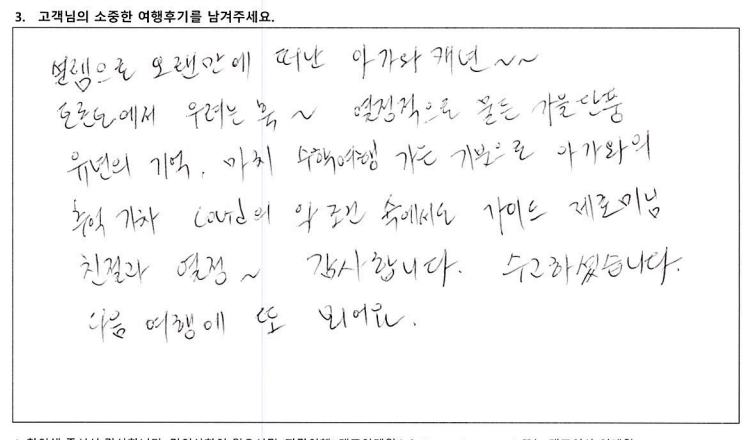 3. 고객님의 소중한 여행후기를 남겨주세요.
설렘으로 오랜만에 떠난 아가와 캐년~~
토론토에서 우려는 뚝~ 열정적으로 물든 가을단풍
유년의 기억. 마치 수학여행 가는 기분으로 아가와의
추억 기차 Covid의 악조건 속에서도 가이드 제로미님
친절과 열정~ 감사합니다. 수고하셨습니다.
다음 여행에 또 뵈어요.